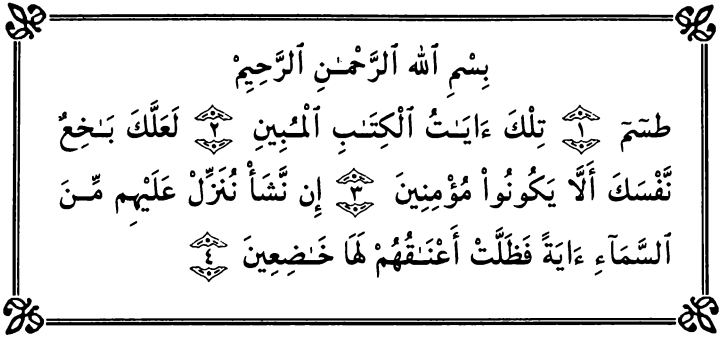 بِسْمِ ٱللهِ ٱلرَّحْمَـٰنِ ٱلرَّحِيمِ
طسٓمٓ ﴿١﴾ تِلْكَ ءَايَـٰتُ ٱلْكِتَـٰبِ ٱلْمُبِينِ ﴿٢﴾ لَعَلَّكَ بَـٰخِعٌ
نَّفْسَكَ أَلَّا يَكُونُوا۟ مُؤْمِنِينَ ﴿٣﴾ إِن نَّشَأْ نُنَزِّلْ عَلَيْهِم مِّـنَ
ٱلسَّمَآءِ ءَايَةً فَظَلَّتْ أَعْنَـٰقُهُمْ لَهَا خَـٰضِعِينَ ﴿٤﴾